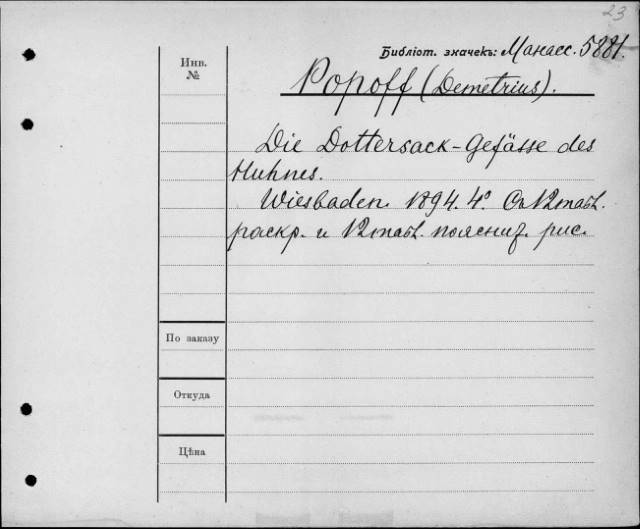 23
Библіот. значекъ: Манасс. 5881.
Инв.
№
Popoff (Demetrius).
Die Dottersack-Gefässe des
Huhnes.
Wiesbaden. 1894. 4º. Съ 12 табл.
раскр. и 12 табл. пояснит. рис.
По заказу
Откуда
Цѣна